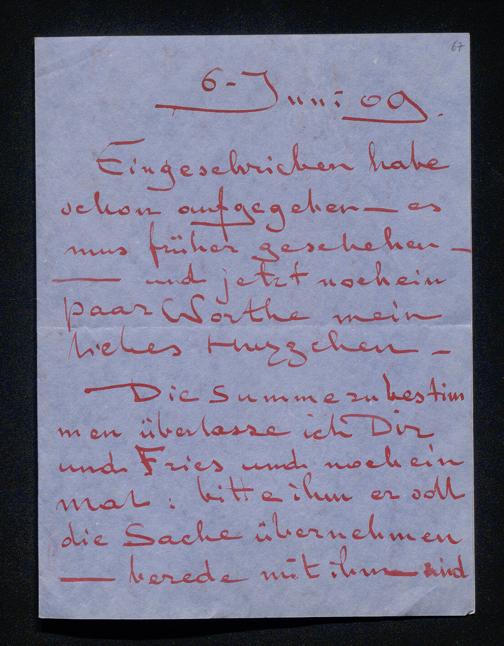 67
6-Juni 09.
Eingeschrieben habe
schon aufgegeben— es
mus früher geschehen —
— und jetzt nochein
paar Worthe mein
liebes Huzzchen —
— Die Summe zu bestim
men überlasse ich Dir
und Fries und nochein
mal : bitte ihm er soll
die Sache übernehmen
— berede mit ihm — sind